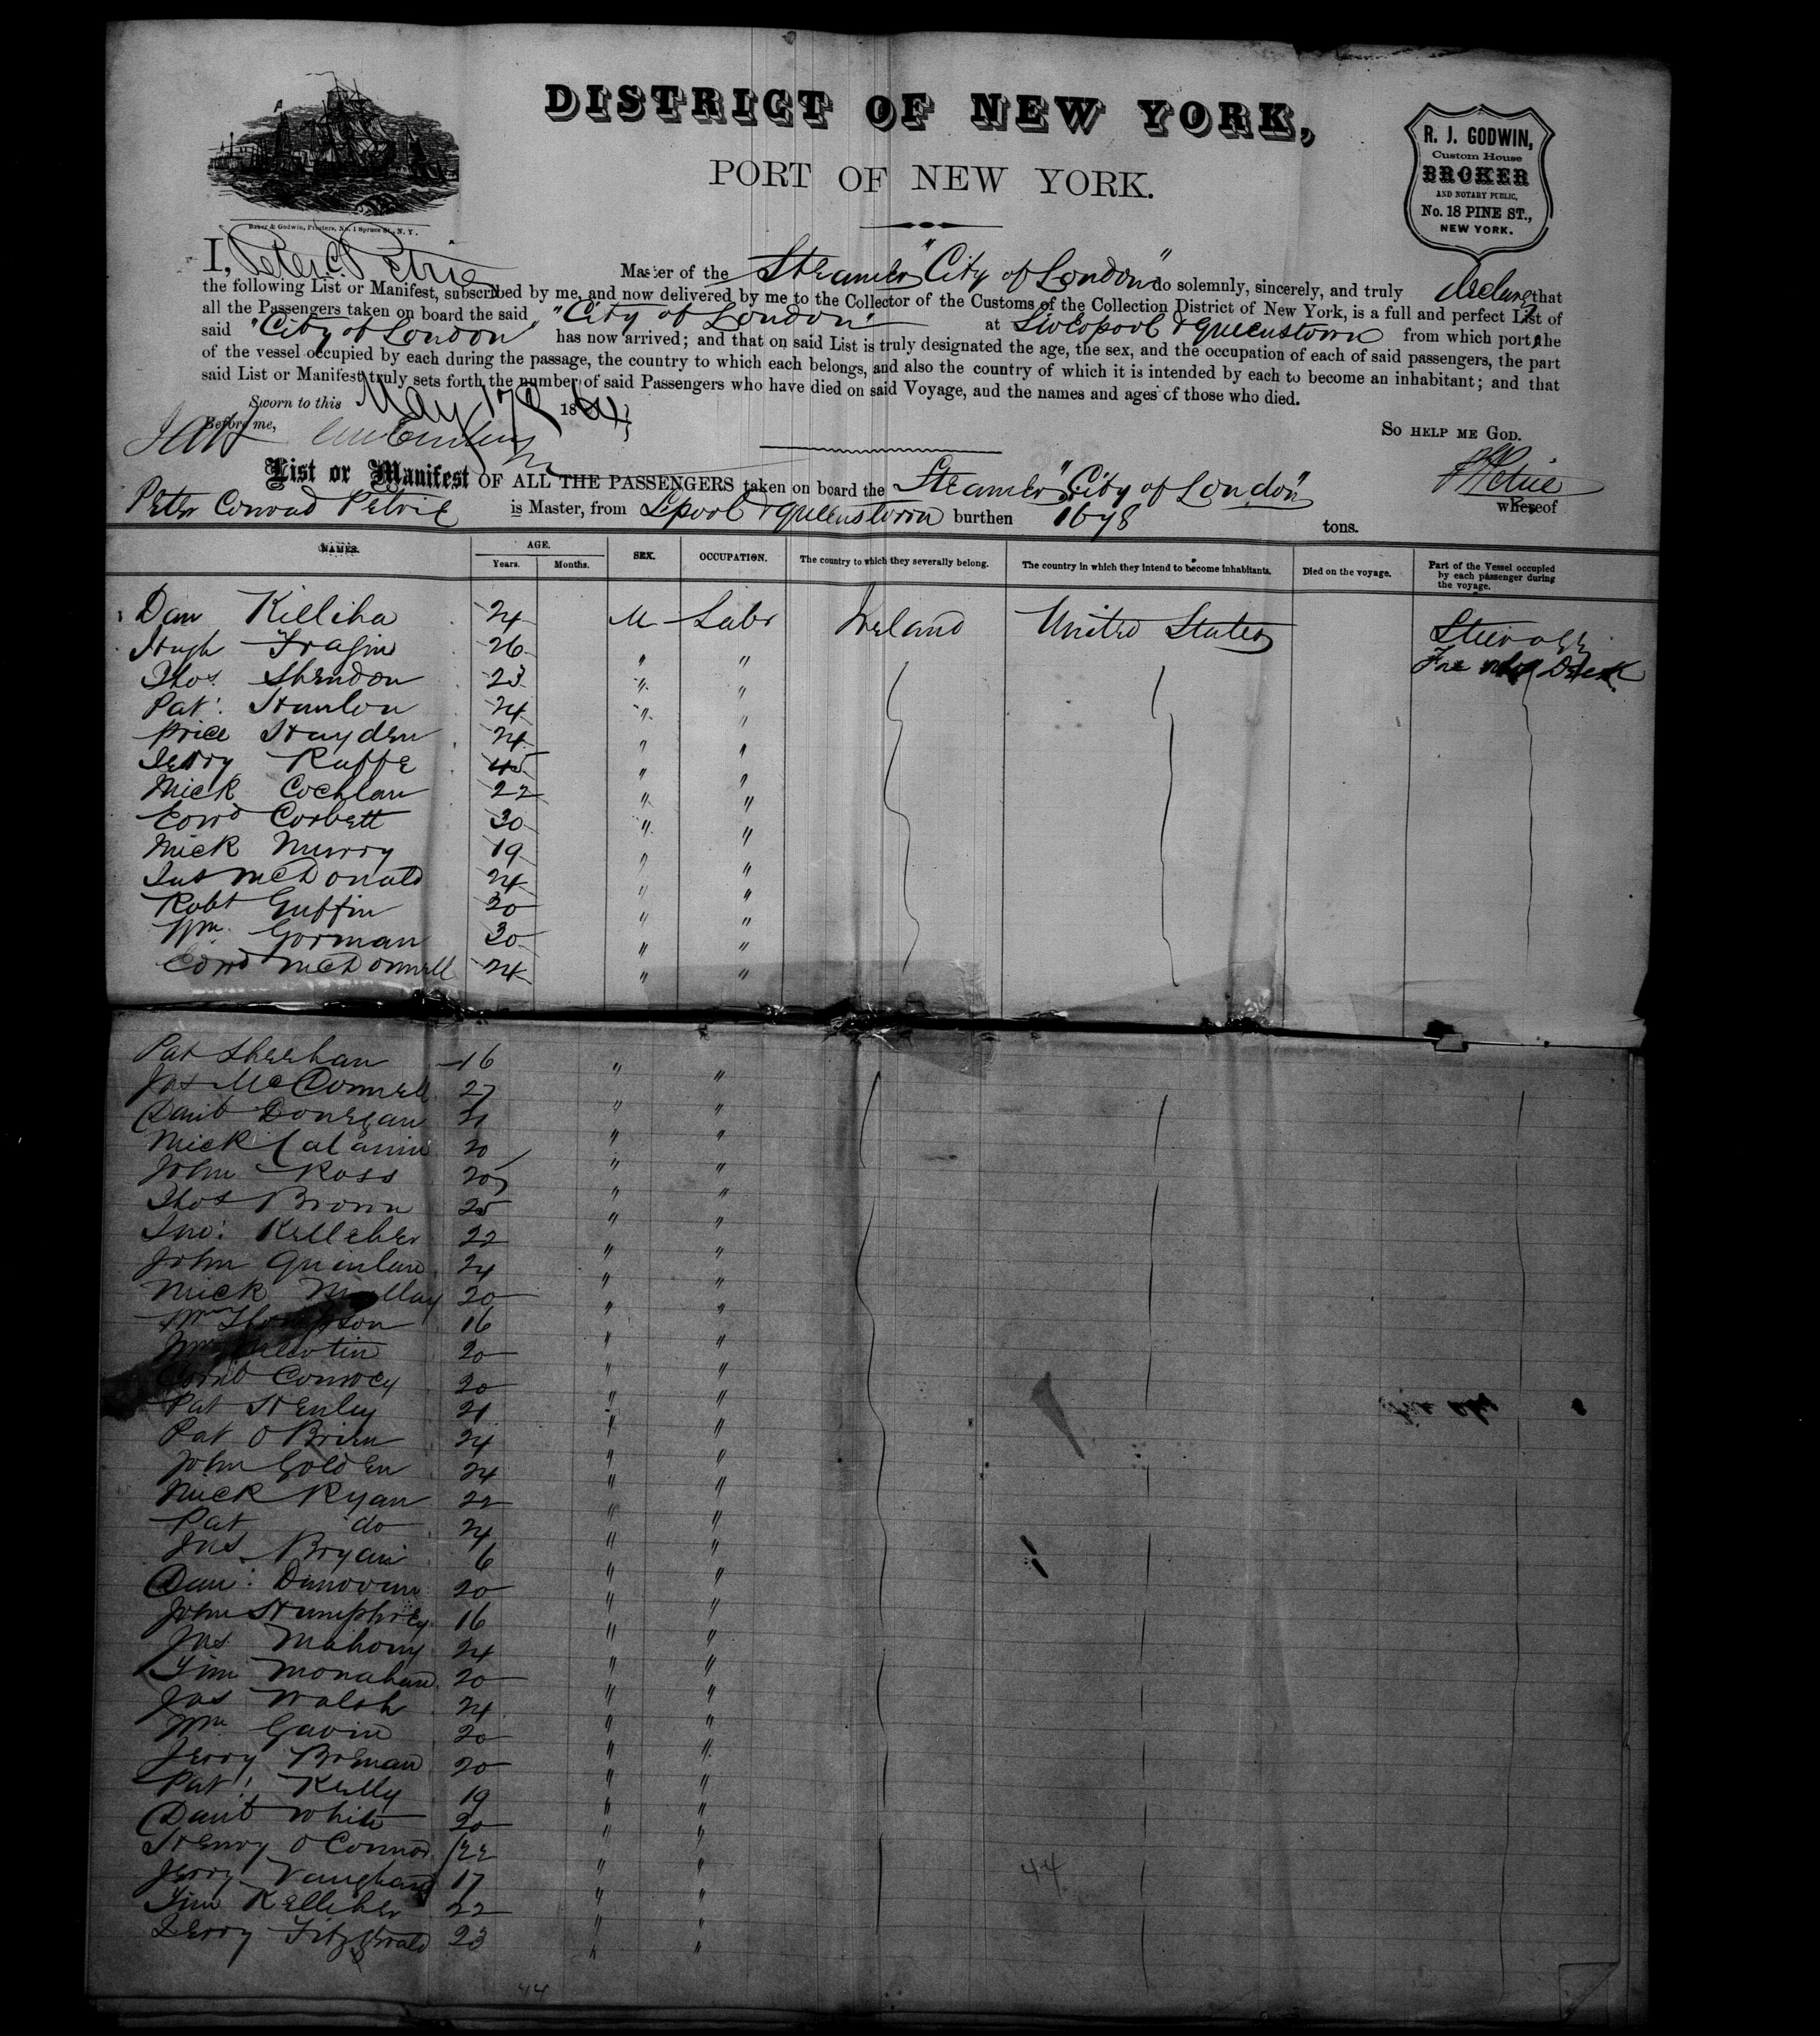 DISTRICT OF NEW YORK,
PORT OF NEW YORK.
R. J. GODWIN,
Custom House
BROKER
AND NOTARY PUBLIC,
No. 18 PINE ST.,
NEW YORK.
Baker & Godwin, Printers, No. 1 Spruce St., N. Y.
I, Peter C. Petrie Master of the Steamer "City of London" do solemnly, sincerely, and truly declare that
the following List or Manifest, subscribed by me, and now delivered by me to the Collector of the Customs of the Collection District of New York, is a full and perfect List of
all the Passengers taken on board the said "City of London" at Liverpool & Queenstown from which ports the
said "City of London" has now arrived; and that on said List is truly designated the age, the sex, and the occupation of each of said passengers, the part
of the vessel occupied by each during the passage, the country to which each belongs, and also the country of which it is intended by each to become an inhabitant; and that
said List or Manifest truly sets forth the number of said Passengers who have died on said Voyage, and the names and ages of those who died.
Sworn to this May 17 1864
Before me,
So HELP ME GOD.
PCPetrie
List or Manifest OF ALL THE PASSENGERS taken on board the Steamer "City of London" whereof
Peter Conrad Petrie is Master, from Lpool & Queenstown burthen 1678 tons.
NAMES. AGE. SEX. OCCUPATION. The country to which they severally belong. The country in which they intend to become inhabitants. Died on the voyage. Part of the Vessel occupied by each passenger during the voyage.
Years. Months.
Dan Killiha 24 M Labr Ireland United States Steerage
Hugh 26 " " Deck
Thos Sheridon 23 " "
Pat Hanlon 24 " "
Price Hayden 24 " "
Jerry Ruffe 45 " "
Mick Cochlan 22 " "
Edwd Corbett 30 " "
Mick Murry 19 " "
Jas McDonald 24 " "
Robt Guffin 20 " "
Wm Gorman 30 " "
Edwd McDonnell 24 " "
Pat Sheehan 16 " "
Jas McDonnell 27 " "
Danl Donegan 21 " "
Mick 20 " "
John Ross 20 " "
Thos Brown 25 " "
Jno: Kelleher 22 " "
John Quinlan 24 " "
Mick 20 " "
Wm Thompson 16 " "
Martin 20 " "
Conwey 20 " "
Pat Henley 21 " "
Pat O Brien 24 " "
John Golden 24 " "
Mick Ryan 22 " "
Pat do 24 " "
Jas Bryan 6 " "
Dan: Donovan 20 " "
John Humphrey 16 " "
Jas Mahony 24 " "
Tim Monahan 20 " "
Jas Walsh 24 " "
Wm Gavin 20 " "
Jerry Brenan 20 " "
Pat: Kelly 19 " "
Danl White 20 " "
Henry O Connor 22 " "
Jerry Vaughan 17 " "
Tim Kelliher 22 " "
Jerry Fitzgerald 23 " "
44
44